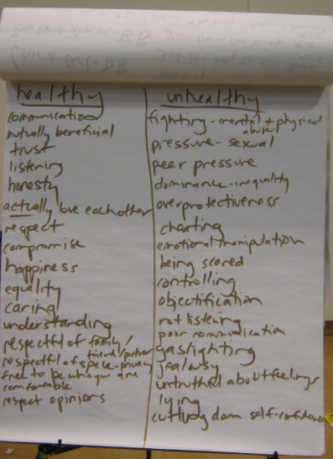 healthy
communication
mutually beneficial
trust
listening
honesty
actually love eachother
respect
compromise
happiness
equality
caring
understanding
respectful of family/
friend/partner
respectful of space-privacy
free to be who you are
comfortable
respect opinions
unhealthy
fighting-mental + physical
abuse
pressure-sexual
peer pressure
dominance-inequality
overprotectiveness
cheating
emotional manipulation
being scared
controlling
objectification
not listening
poor communication
gaslighting
jealousy
untruthful about feelings
lying
cutting down self-confidence